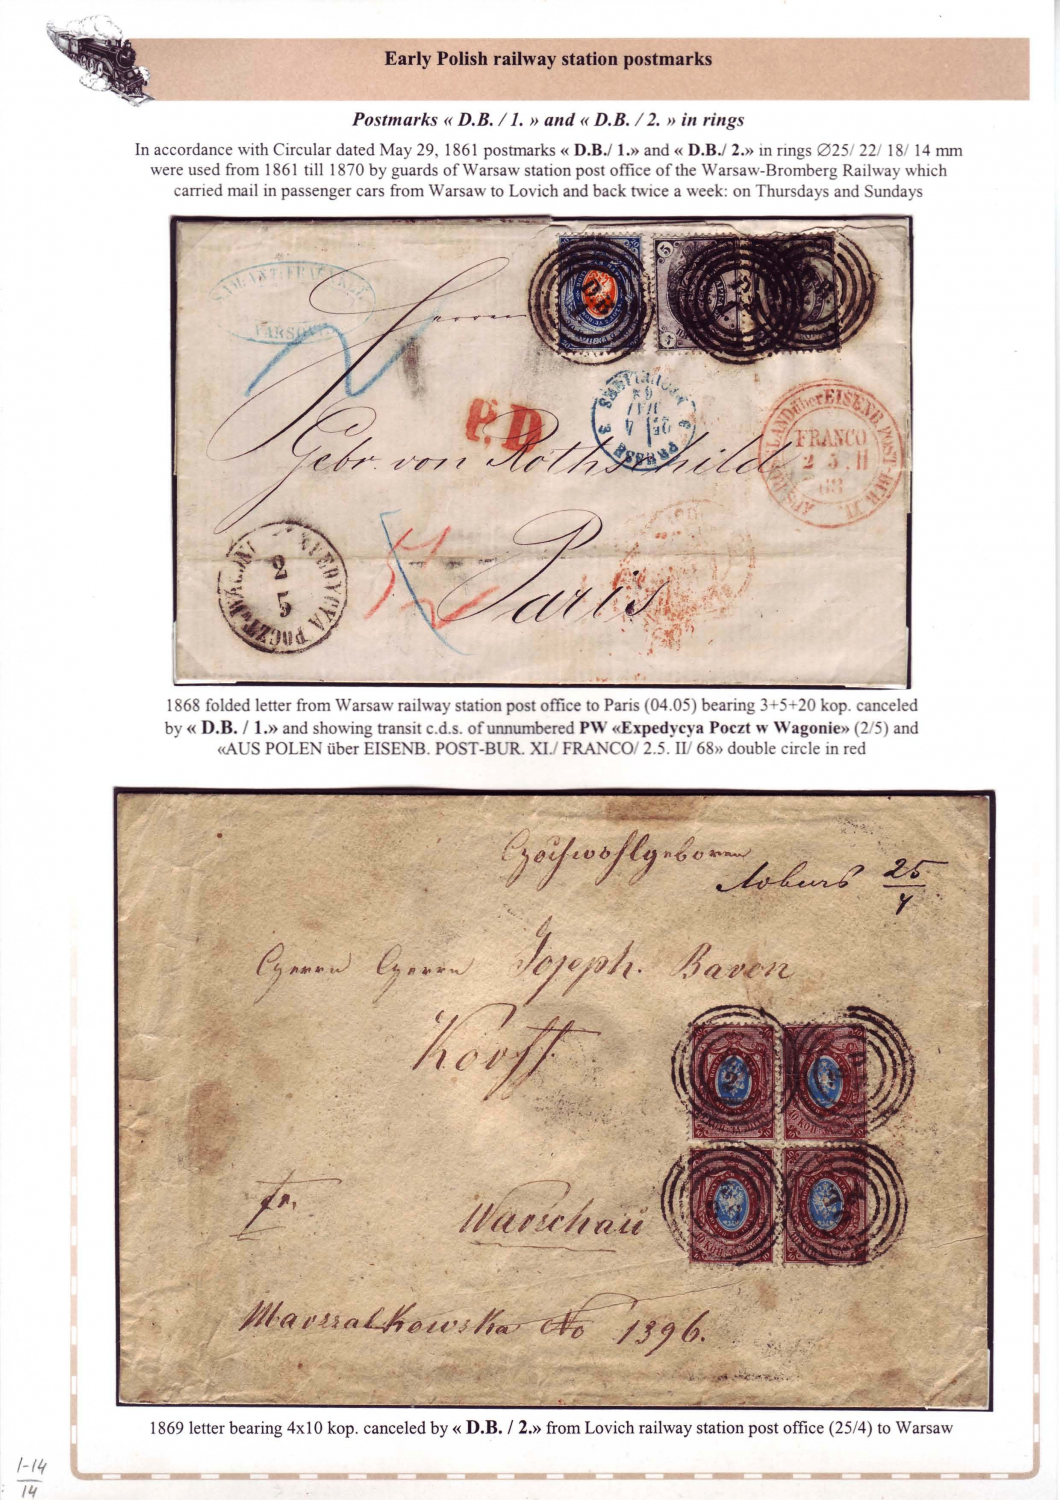 Early Polish railway station postmarks
Postmarks « D.B. / 1. » and « D.B. / 2. » in rings
In accordance with Circular dated May 29, 1861 postmarks « D.B./ 1.» and « D.B./ 2.» in rings Ø25/ 22/ 18/ 14 mm
were used from 1861 till 1870 by guards of Warsaw station post office of the Warsaw-Bromberg Railway which
carried mail in passenger cars from Warsaw to Lovich and back twice a week: on Thursdays and Sundays
Herrn
P.D
Gebr. von Rothschild
FRANCO
2 5. II
68
2
5
Paris
1868 folded letter from Warsaw railway station post office to Paris (04.05) bearing 3+5+20 kop. canceled
by « D.B. / 1.» and showing transit c.d.s. of unnumbered PW «Expedycya Poczt w Wagonie» (2/5) and
«AUS POLEN über EISENB. POST-BUR. XI./ FRANCO/ 2.5. II/ 68» double circle in red
Hochwohlgeboren
25
4
Herrn Herrn Joseph. Baron
Korff.
fr.
Warschau
Marszalkowska No 1396.
1869 letter bearing 4x10 kop. canceled by « D.B. / 2.» from Lovich railway station post office (25/4) to Warsaw
1-14
14